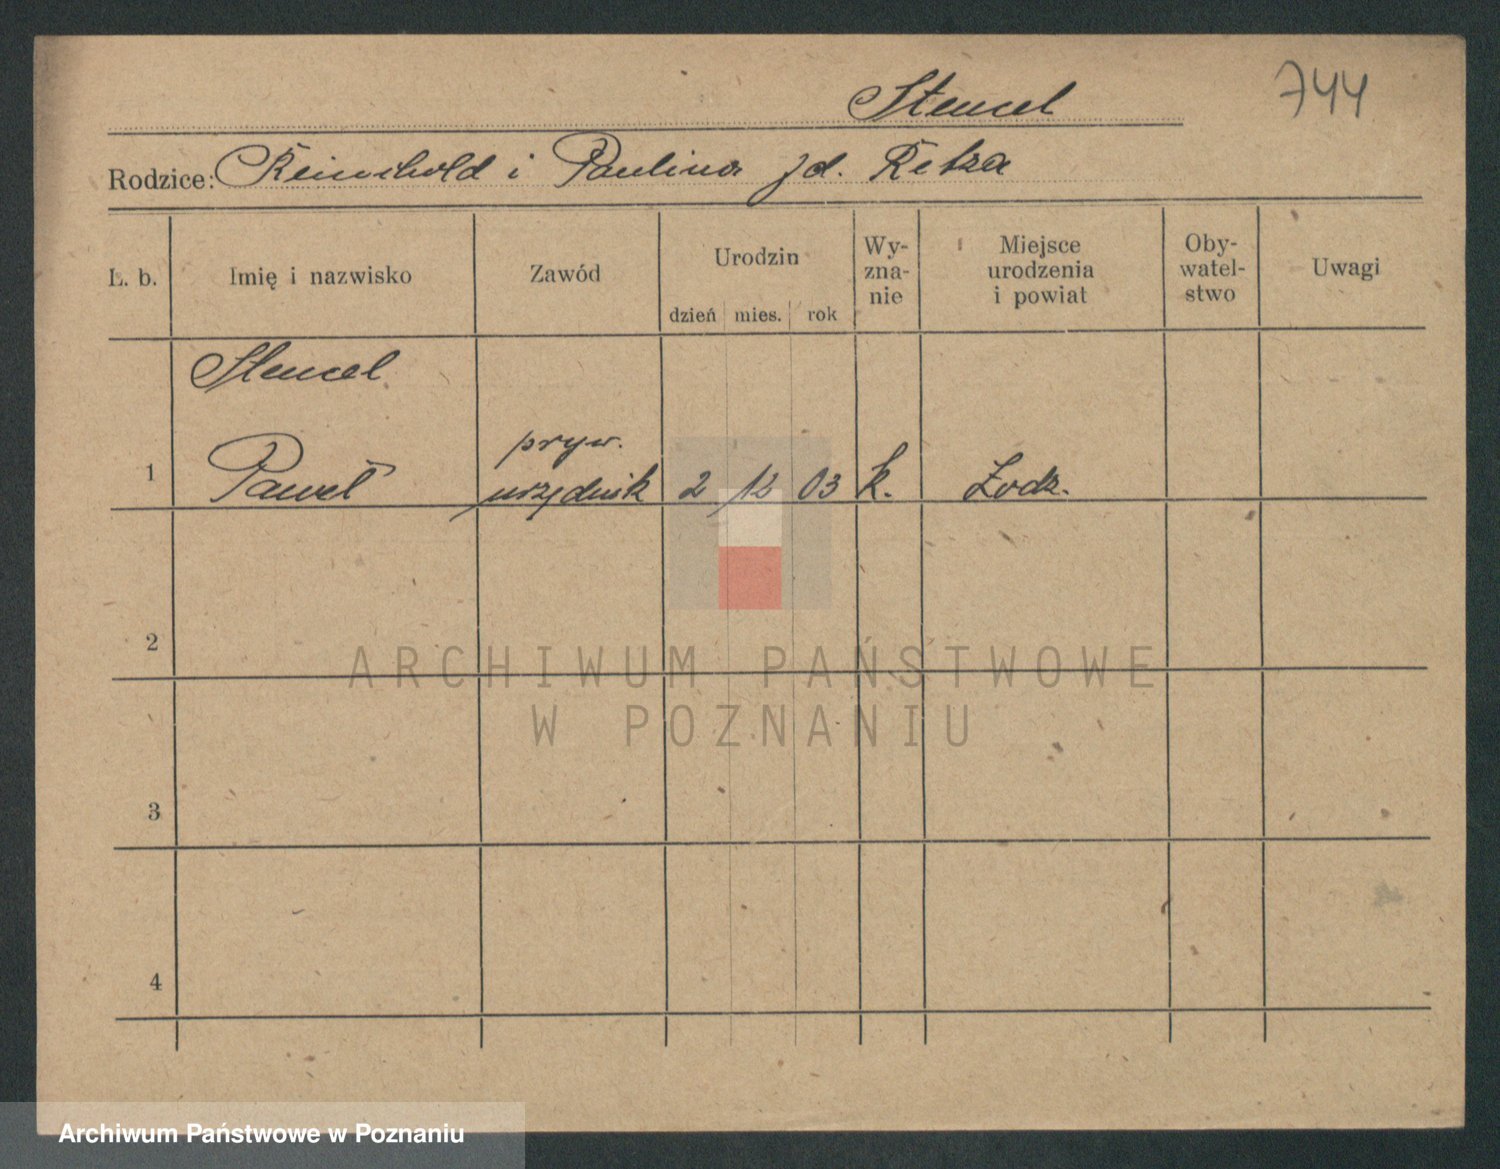 Stencel 744
Rodzice: Reinhold i Paulina zd. Retza
L. b. Imię i nazwisko Zawód Urodzin Wy-zna-nie Miejsce urodzenia i powiat Oby-watel-stwo Uwagi
dzień mies. rok
Stencel
pryw.
1 Paweł urzędnik 2 12 03 k. Łodz.
2
ARCHIWUM PAŃSTWOWE
W POZNANIU
3
4
Archiwum Państwowe w Poznaniu